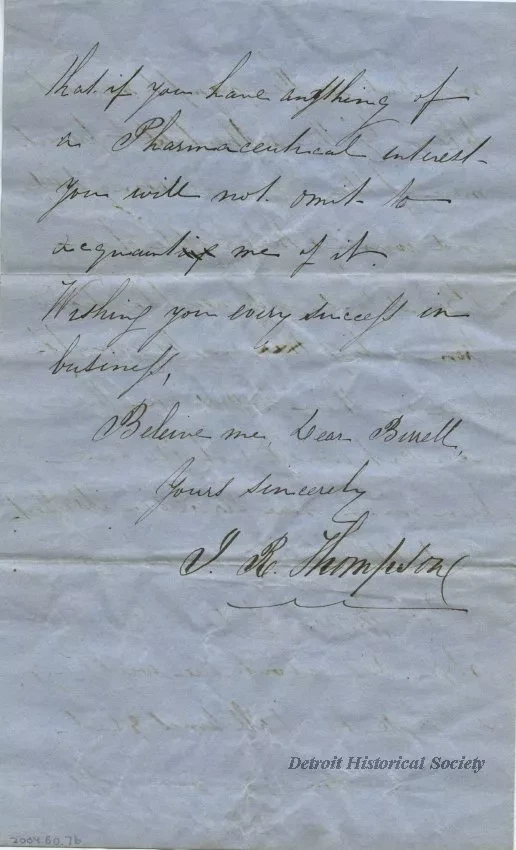 that if you have anything of
a Pharmaceutical interest
you will not omit to
acquaint me of it.
Wishing you every success in
business,
Beleive me, Dear Burell,
Yours sincerely
J. R. Thompson
Detroit Historical Society
2004.80.76